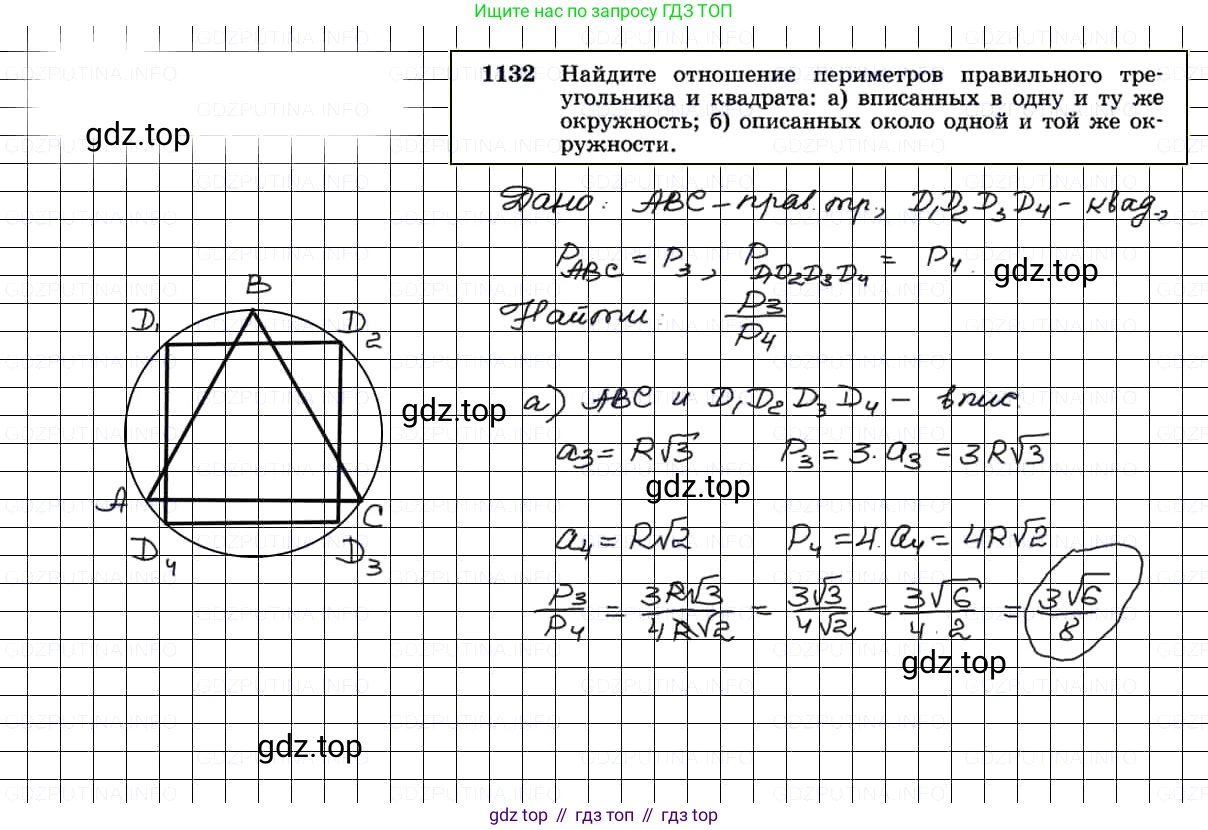 Ищите нас по запросу ГДЗ ТОП
1132 Найдите отношение периметров правильного тре-
угольника и квадрата: а) вписанных в одну и ту же
окружность; б) описанных около одной и той же ок-
ружности.
gdz.top
Дано: ABC – прав. тр., D₁D₂D₃D₄ – квад.,
P_ABC = P₃, P_D₁D₂D₃D₄ = P₄.
gdz.top
Найти: P₃/P₄
B
D₁ D₂
A C
D₄ D₃
gdz.top
а) ABC и D₁D₂D₃D₄ – впис.
a₃ = R√3 P₃ = 3·a₃ = 3R√3
gdz.top
a₄ = R√2 P₄ = 4·a₄ = 4R√2
P₃/P₄ = 3R√3/4R√2 = 3√3/4√2 = 3√6/4·2 = 3√6/8
gdz.top
gdz.top
gdz top // гдз топ // gdz top